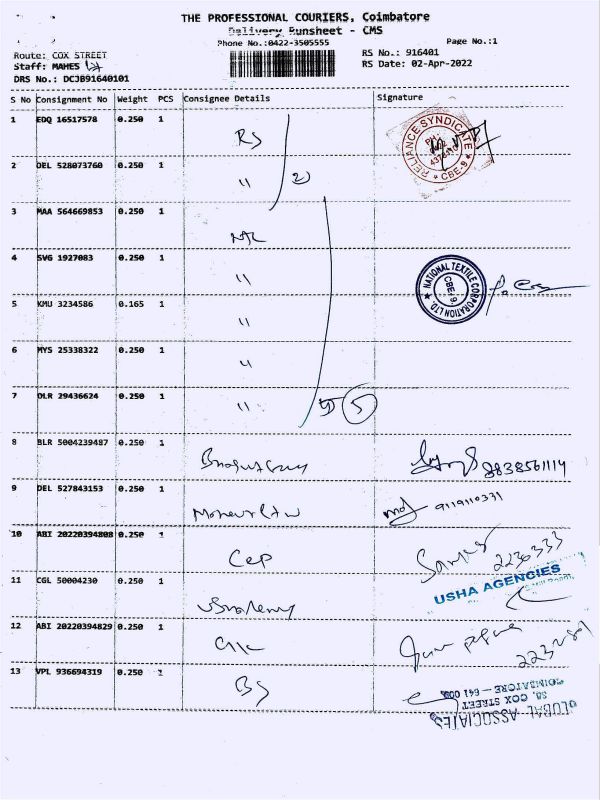 THE PROFESSIONAL COURIERS, Coimbatore
Delivery Runsheet - CMS
Phone No.:0422-3505555
Page No.:1
Route: COX STREET
RS No.: 916401
Staff: MAHES
RS Date: 02-Apr-2022
DRS No.: DCJB91640101
S No Consignment No Weight PCS Consignee Details Signature
1 EDQ 16517578 0.250 1 RS
RELIANCE SYNDICATE
CBE-9
2 DEL 528073760 0.250 1 " 2
3 MAA 564669853 0.250 1
4 SVG 1927083 0.250 1 "
NATIONAL TEXTILE CORPORATION LTD.
CBE-9
5 KMU 3234586 0.165 1 "
6 MYS 25338322 0.250 1 "
7 DLR 29436624 0.250 1 " 5
8 BLR 5004239487 0.250 1 9838561114
9 DEL 527843153 0.250 1 9119110331
10 ABI 20220394808 0.250 1 Cep 2230333
11 CGL 50004230 0.250 1
USHA AGENCIES
12 ABI 20220394829 0.250 1
13 VPL 936694319 0.250 1 BS
GLOBAL ASSOCIATES
COX STREET
COIMBATORE - 641 009.